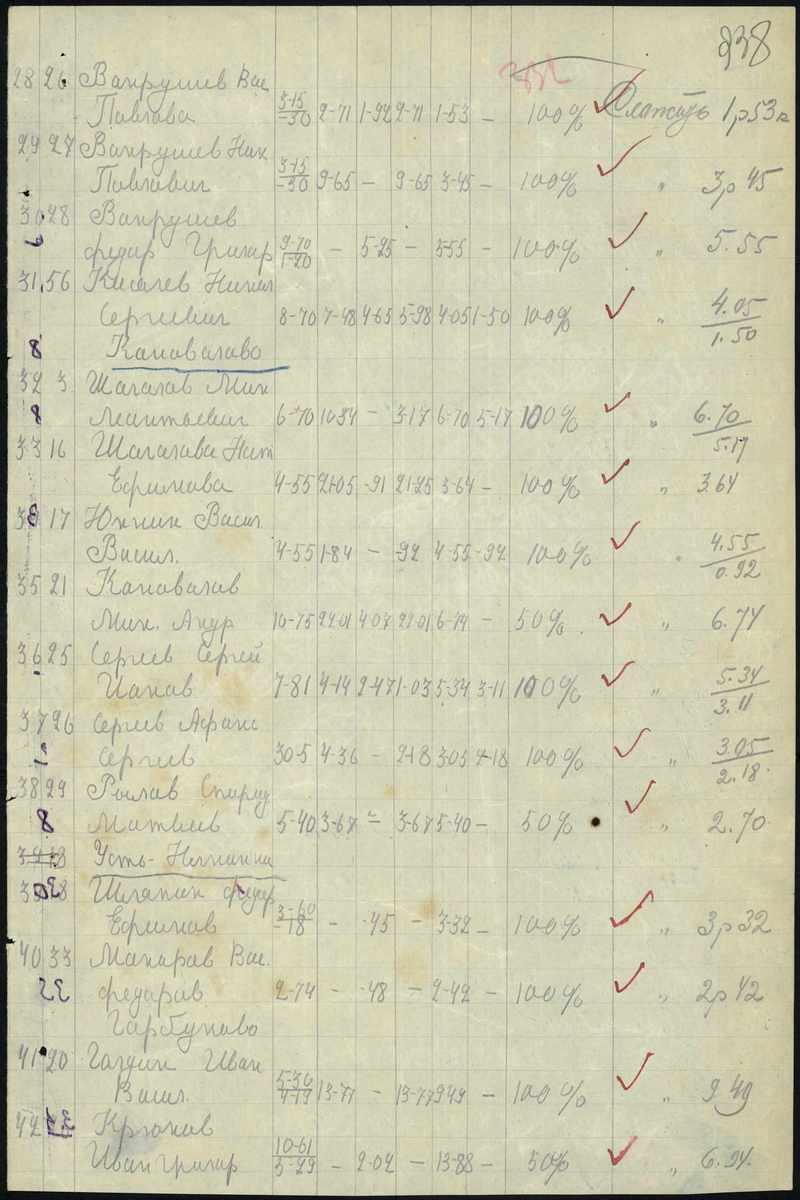 238
28 26 Вахрушев Вас
Павлава 3-15/-30 2-71 1-92 2-71 1-53 – 100% Сложить 1р53к
29 27 Вахрушев Ник
Павлавич 3-15/-30 9-65 – 9-65 3-45 – 100% " 3р 45
30 28 Вахрушев
федар Григар 9-70/1-20 – 5-25 – 5-55 – 100% " 5.55
31 56 Киселев Никал
Сергиевич 8-70 7-48 4-65 5-98 4-05 1-50 100% " 4.05/1.50
8 Канавалаво
32 3 Шагалав Мих
8 Леантьевич 6-70 10-34 – 3-17 6-70 5-17 100% " 6.70/5.17
33 16 Шагалава Нат
Ефимава 4-55 21-05 -91 21-25 3-64 – 100% " 3.64
17 Юнкин Васил
Васил. 4-55 1-84 – -92 4-55 -92 100% " 4.55/0.92
35 21 Канавалав
Мих. Андр 10-75 22-01 4-07 22-01 6-74 – 50% " 6.74
36 25 Сергеев Сергей
Ианав 7-81 4-14 2-47 1-03 5-34 3-11 100% " 5.34/3.11
37 26 Сергеев Афанс
Сергеев 30-5 4-36 – 2-18 3-05 2-18 100% " 3.05/2.18
38 29 Рылав Спирид
8 Матвеев 5-40 3-67 – 3-67 5-40 – 50% " 2.70
Усть-
Шляпин федар
Ефимав 3-60/-18 – -45 – 3-32 – 100% " 3р32
40 33 Макарав Вас.
федарав 2-74 – -48 – 2-42 – 100% " 2р42
Гарбунаво
41 20 Галдин Иван
Васил. 5-30/4-19 13-77 – 13-77 9-49 – 100% " 9 49
42 Крюкав
Иван Григар 10-61/5-29 – 2-02 – 13-88 – 50% " 6.94.